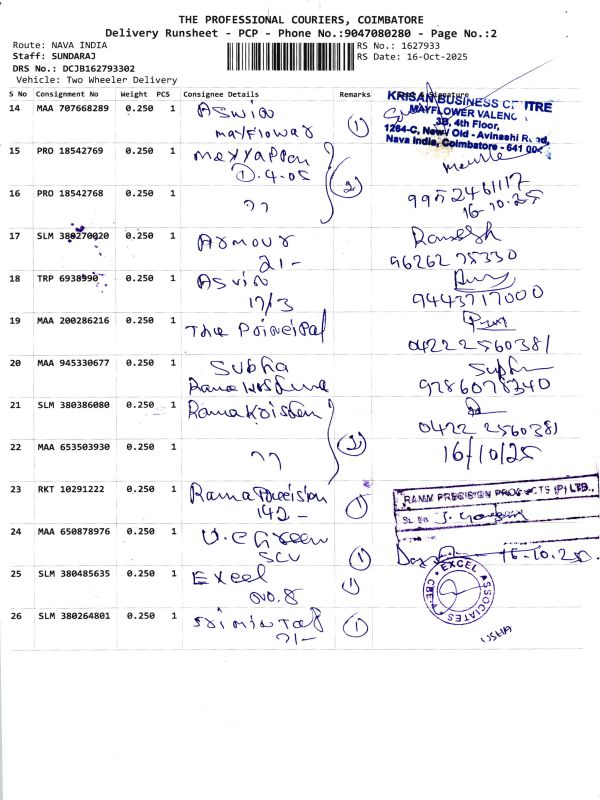 THE PROFESSIONAL COURIERS, COIMBATORE
Delivery Runsheet - PCP - Phone No.:9047080280 - Page No.:2
Route: NAVA INDIA
Staff: SUNDARAJ
DRS No.: DCJB162793302
Vehicle: Two Wheeler Delivery
RS No.: 1627933
RS Date: 16-Oct-2025
S No Consignment No Weight PCS Consignee Details Remarks
14 MAA 707668289 0.250 1 Aswin
mayflower 1
KRISAN BUSINESS CENTRE
MAYFLOWER VALENC
3B, 4th Floor,
1264-C, New / Old - Avinashi Road,
Nava India, Coimbatore - 641 004
15 PRO 18542769 0.250 1 Meyyappan
D.4.05 2
16 PRO 18542768 0.250 1 ,,
9952461117
16.10.25
17 SLM 380270020 0.250 1 Armour
21-
Ramesh
9626275330
18 TRP 6938990 0.250 1 Asvin
17/3
9443717000
19 MAA 200286216 0.250 1 The Principal
04222560381
20 MAA 945330677 0.250 1 Subha
Rama Krishna
9286078340
21 SLM 380386080 0.250 1 Rama Krishan
0422 2560381
22 MAA 653503930 0.250 1 ,,
16/10/25
23 RKT 10291222 0.250 1 Rama Precision
142- 1
RANM PRECISION PRODUCTS (P) LTD.,
24 MAA 650878976 0.250 1 V.C Green
SCV 1
16.10.25
25 SLM 380485635 0.250 1 Excel
NO.8 1
EXCEL ASSOCIATES
CBE
26 SLM 380264801 0.250 1
21- 1